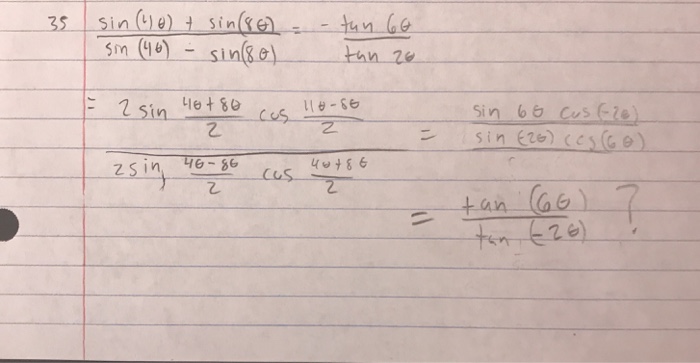 35 sin(4θ) + sin(8θ) / sin(4θ) - sin(8θ) = - tan 6θ / tan 2θ
= 2 sin 4θ+8θ/2 cos 4θ-8θ/2 / 2 sin 4θ-8θ/2 cos 4θ+8θ/2 = sin 6θ cos(-2θ) / sin(-2θ) cos(6θ)
= tan(6θ) / tan(-2θ) ?